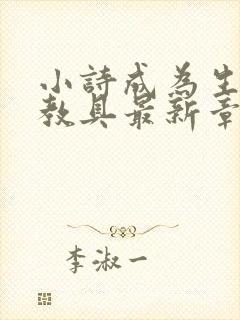 小詩成為生
教具最新章
李淑一